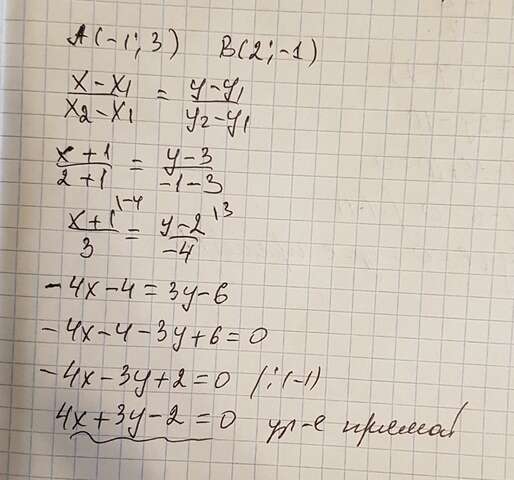 A(-1; 3) B(2; -1)
x-x₁/x₂-x₁ = y-y₁/y₂-y₁
x+1/2+1 = y-3/-1-3
x+1/3 |-4 = y-2/-4 |3
-4x-4=3y-6
-4x-4-3y+6=0
-4x-3y+2=0 |:(-1)
4x+3y-2=0 ур-е прямой